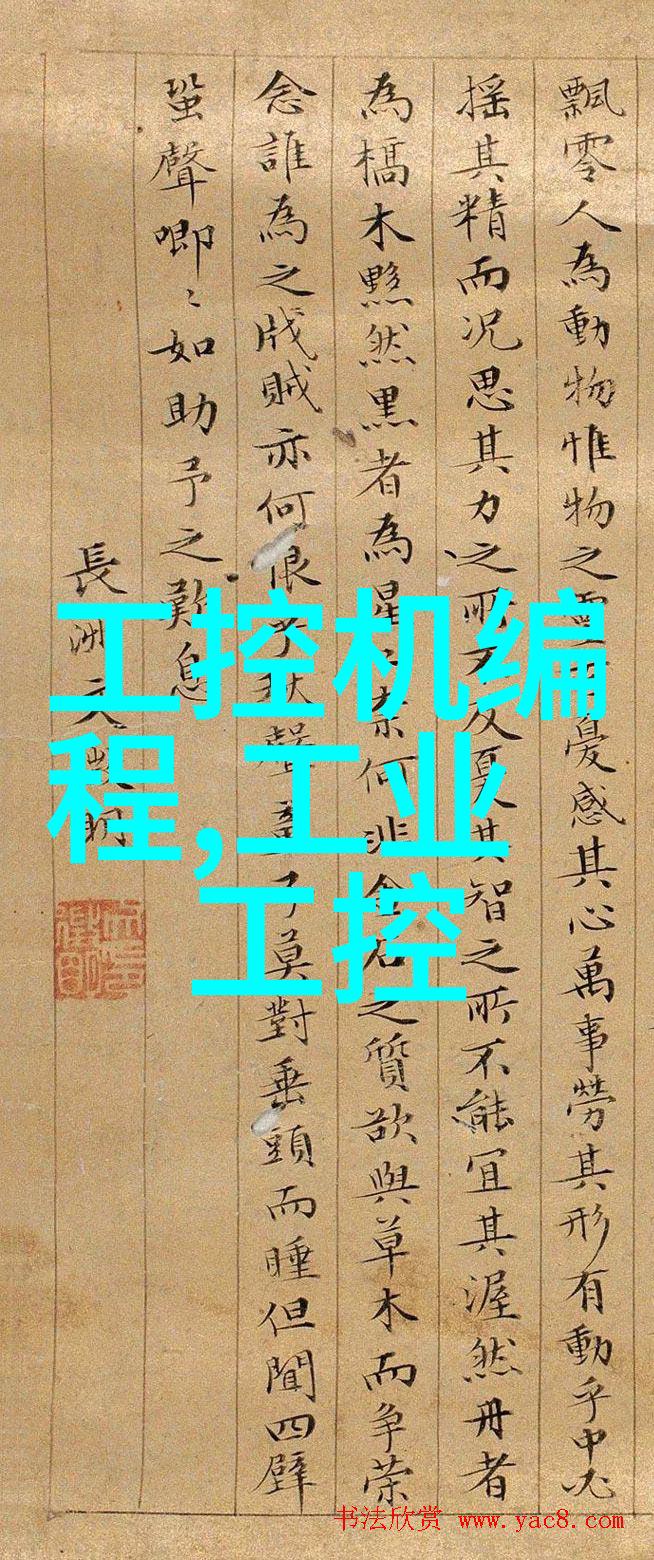 飄零人為動物惟物之靈憂感其心萬事勞其形有動乎中必
搖其精而況思其力之所不及憂其智之所不能宜其渥然丹者
為槁木黟然黒者為星奈何非金石之質欲與草木而争荣
念誰為之戕賊亦何恨乎秋聲童子莫對垂頭而睡但聞四壁
蛩聲唧〻如助予之歎息
長洲文徵明
工控机编
程,工业
工控
书法欣赏 www.yac8.com